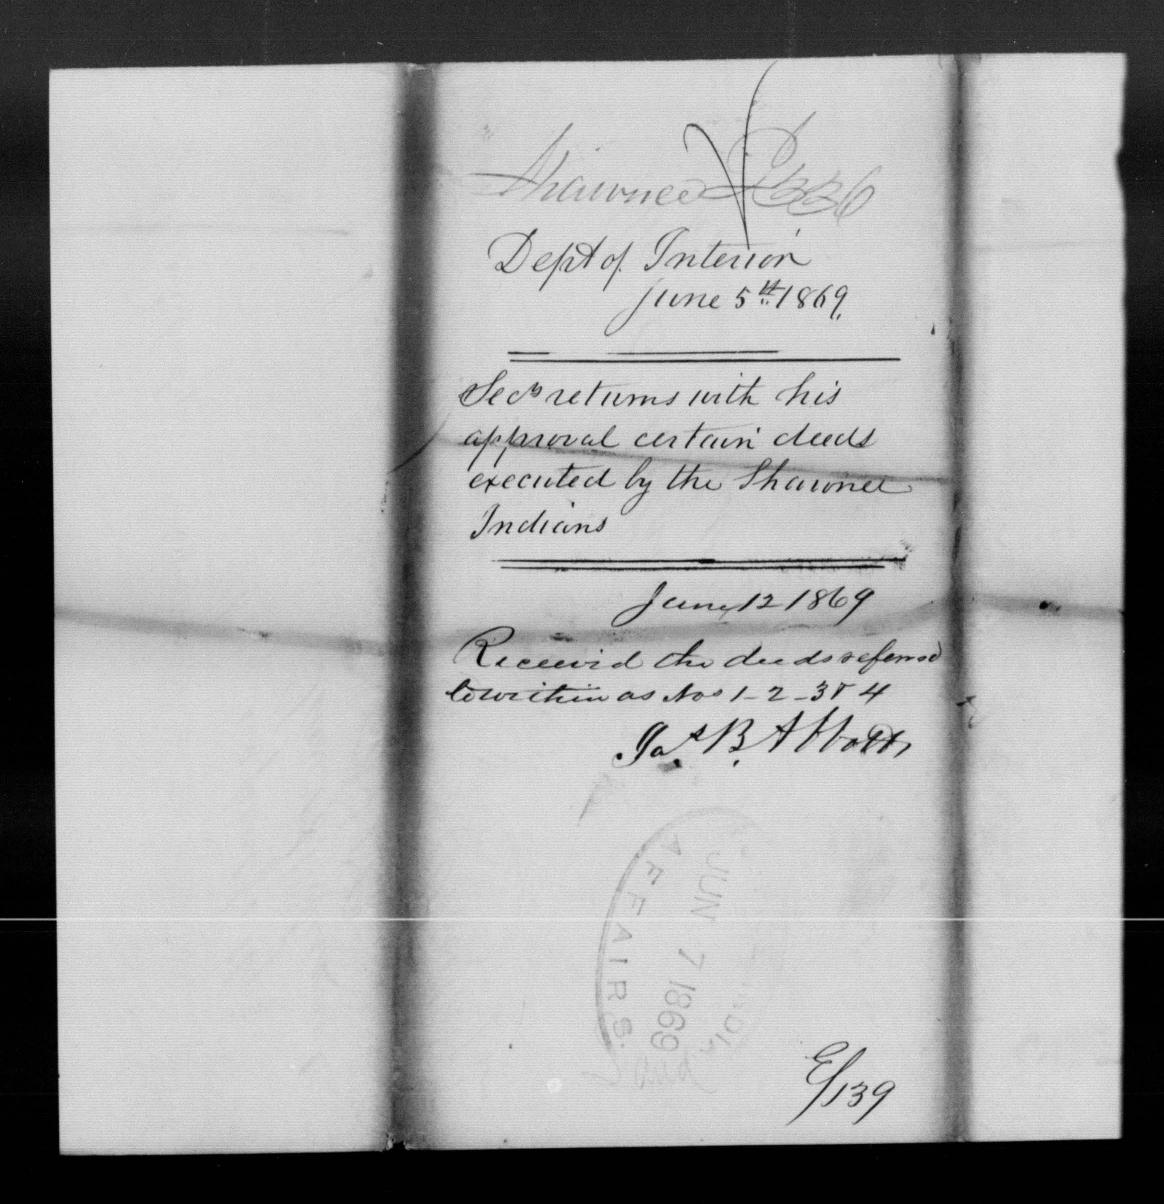 Shawnee I 336
Dept of Interior
June 5th 1869.
Secy returns with his
approval certain deeds
executed by the Shawnee
Indians
June 12 1869
Received the deeds referred
to within as Nos 1-2-3 & 4
Jas. B. Abbott
AFFAIRS.
JUN 7 1869
Land
E/139